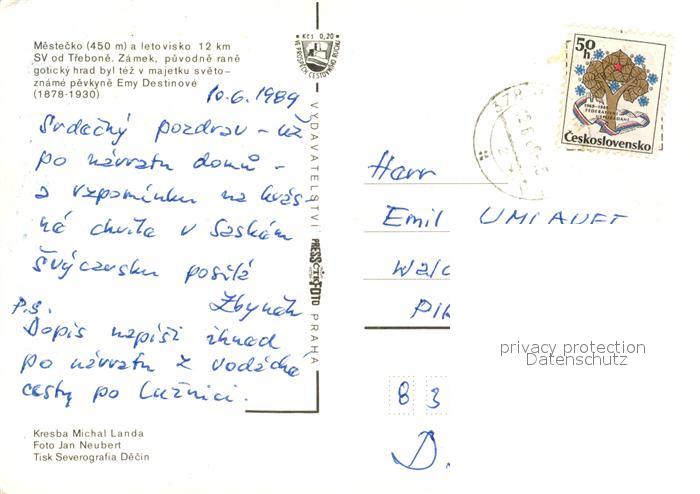 Městečko (450 m) a letovisko 12 km
SV od Třeboně. Zámek, původně raně
gotický hrad byl též v majetku světo-
známé pěvkyně Emy Destinové
(1878-1930)
10.6.1989
Srdečný pozdrav - už
po návratu domů -
a vzpomínku na krás-
né chvíle v Saském
Švýcarsku posílá
Zbyněk
P.S.
Dopis napíši ihned
po návratu z vodácké
cesty po Lužnici.
Kresba Michal Landa
Foto Jan Neubert
Tisk Severografia Děčín
Kčs 0,20
VE PROSPĚCH CESTOVNÍHO RUCHU
VYDAVATELSTVÍ PRESSFOTO PRAHA
ČTK
50h
1969-1989
FEDERATIVNÍ
USPOŘÁDÁNÍ
Československo
Herr
Emil UMLAUFT
83
D.
privacy protection
Datenschutz